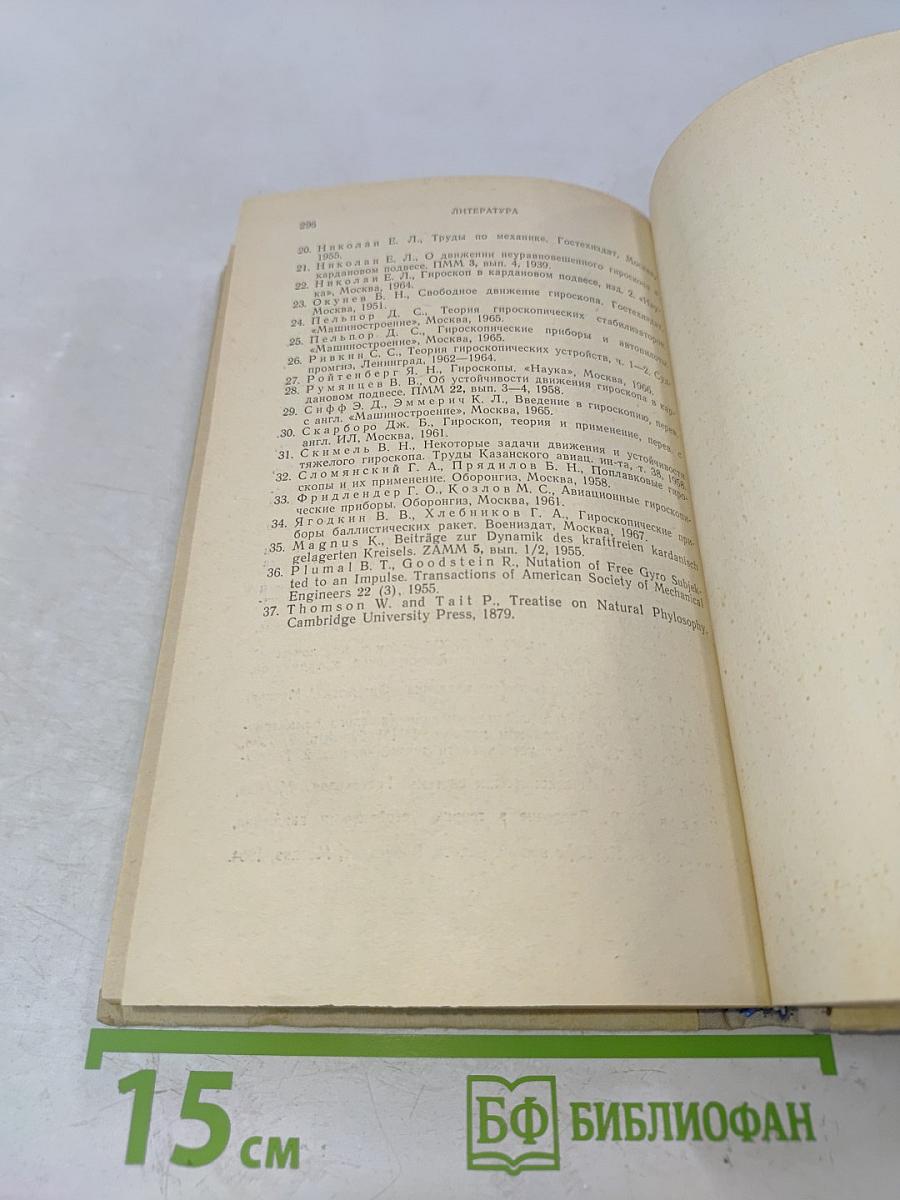 296
ЛИТЕРАТУРА
20. Николаи Е. Л., Труды по механике. Гостехиздат, Москва,
1955.
21. Николаи Е. Л., О движении неуравновешенного гироскопа в
кардановом подвесе. ПММ 3, вып. 4, 1939.
22. Николаи Е. Л., Гироскоп в кардановом подвесе, изд. 2. «Нау-
ка», Москва, 1964.
23. Окунев Б. Н., Свободное движение гироскопа. Гостехиздат,
Москва, 1951.
24. Пельпор Д. С., Теория гироскопических стабилизаторов.
«Машиностроение», Москва, 1965.
25. Пельпор Д. С., Гироскопические приборы и автопилоты.
«Машиностроение», Москва, 1965.
26. Ривкин С. С., Теория гироскопических устройств, ч. 1—2. Суд-
промгиз, Ленинград, 1962—1964.
27. Ройтенберг Я. Н., Гироскопы. «Наука», Москва, 1966.
28. Румянцев В. В., Об устойчивости движения гироскопа в кар-
дановом подвесе. ПММ 22, вып. 3—4, 1958.
29. Сифф Э. Д., Эммерич К. Л., Введение в гироскопию, перев.
с англ. «Машиностроение», Москва, 1965.
30. Скарборо Дж. Б., Гироскоп, теория и применение, перев. с
англ. ИЛ, Москва, 1961.
31. Скимель В. Н., Некоторые задачи движения и устойчивости
тяжелого гироскопа. Труды Казанского авиац. ин-та, т. 38, 1958.
32. Сломянский Г. А., Прядилов Б. Н., Поплавковые гиро-
скопы и их применение. Оборонгиз, Москва, 1958.
33. Фридлендер Г. О., Козлов М. С., Авиационные гироскопи-
ческие приборы. Оборонгиз, Москва, 1961.
34. Ягодкин В. В., Хлебников Г. А., Гироскопические при-
боры баллистических ракет. Воениздат, Москва, 1967.
35. Magnus K., Beiträge zur Dynamik des kraftfreien kardanisch
gelagerten Kreisels. ZAMM 5, вып. 1/2, 1955.
36. Plumal B. T., Goodstein R., Nutation of Free Gyro Subjek-
ted to an Impulse. Transactions of American Society of Mechanical
Engineers 22 (3), 1955.
37. Thomson W. and Tait P., Treatise on Natural Phylosophy.
Cambridge University Press, 1879.
15 см
БФ БИБЛИОФАН